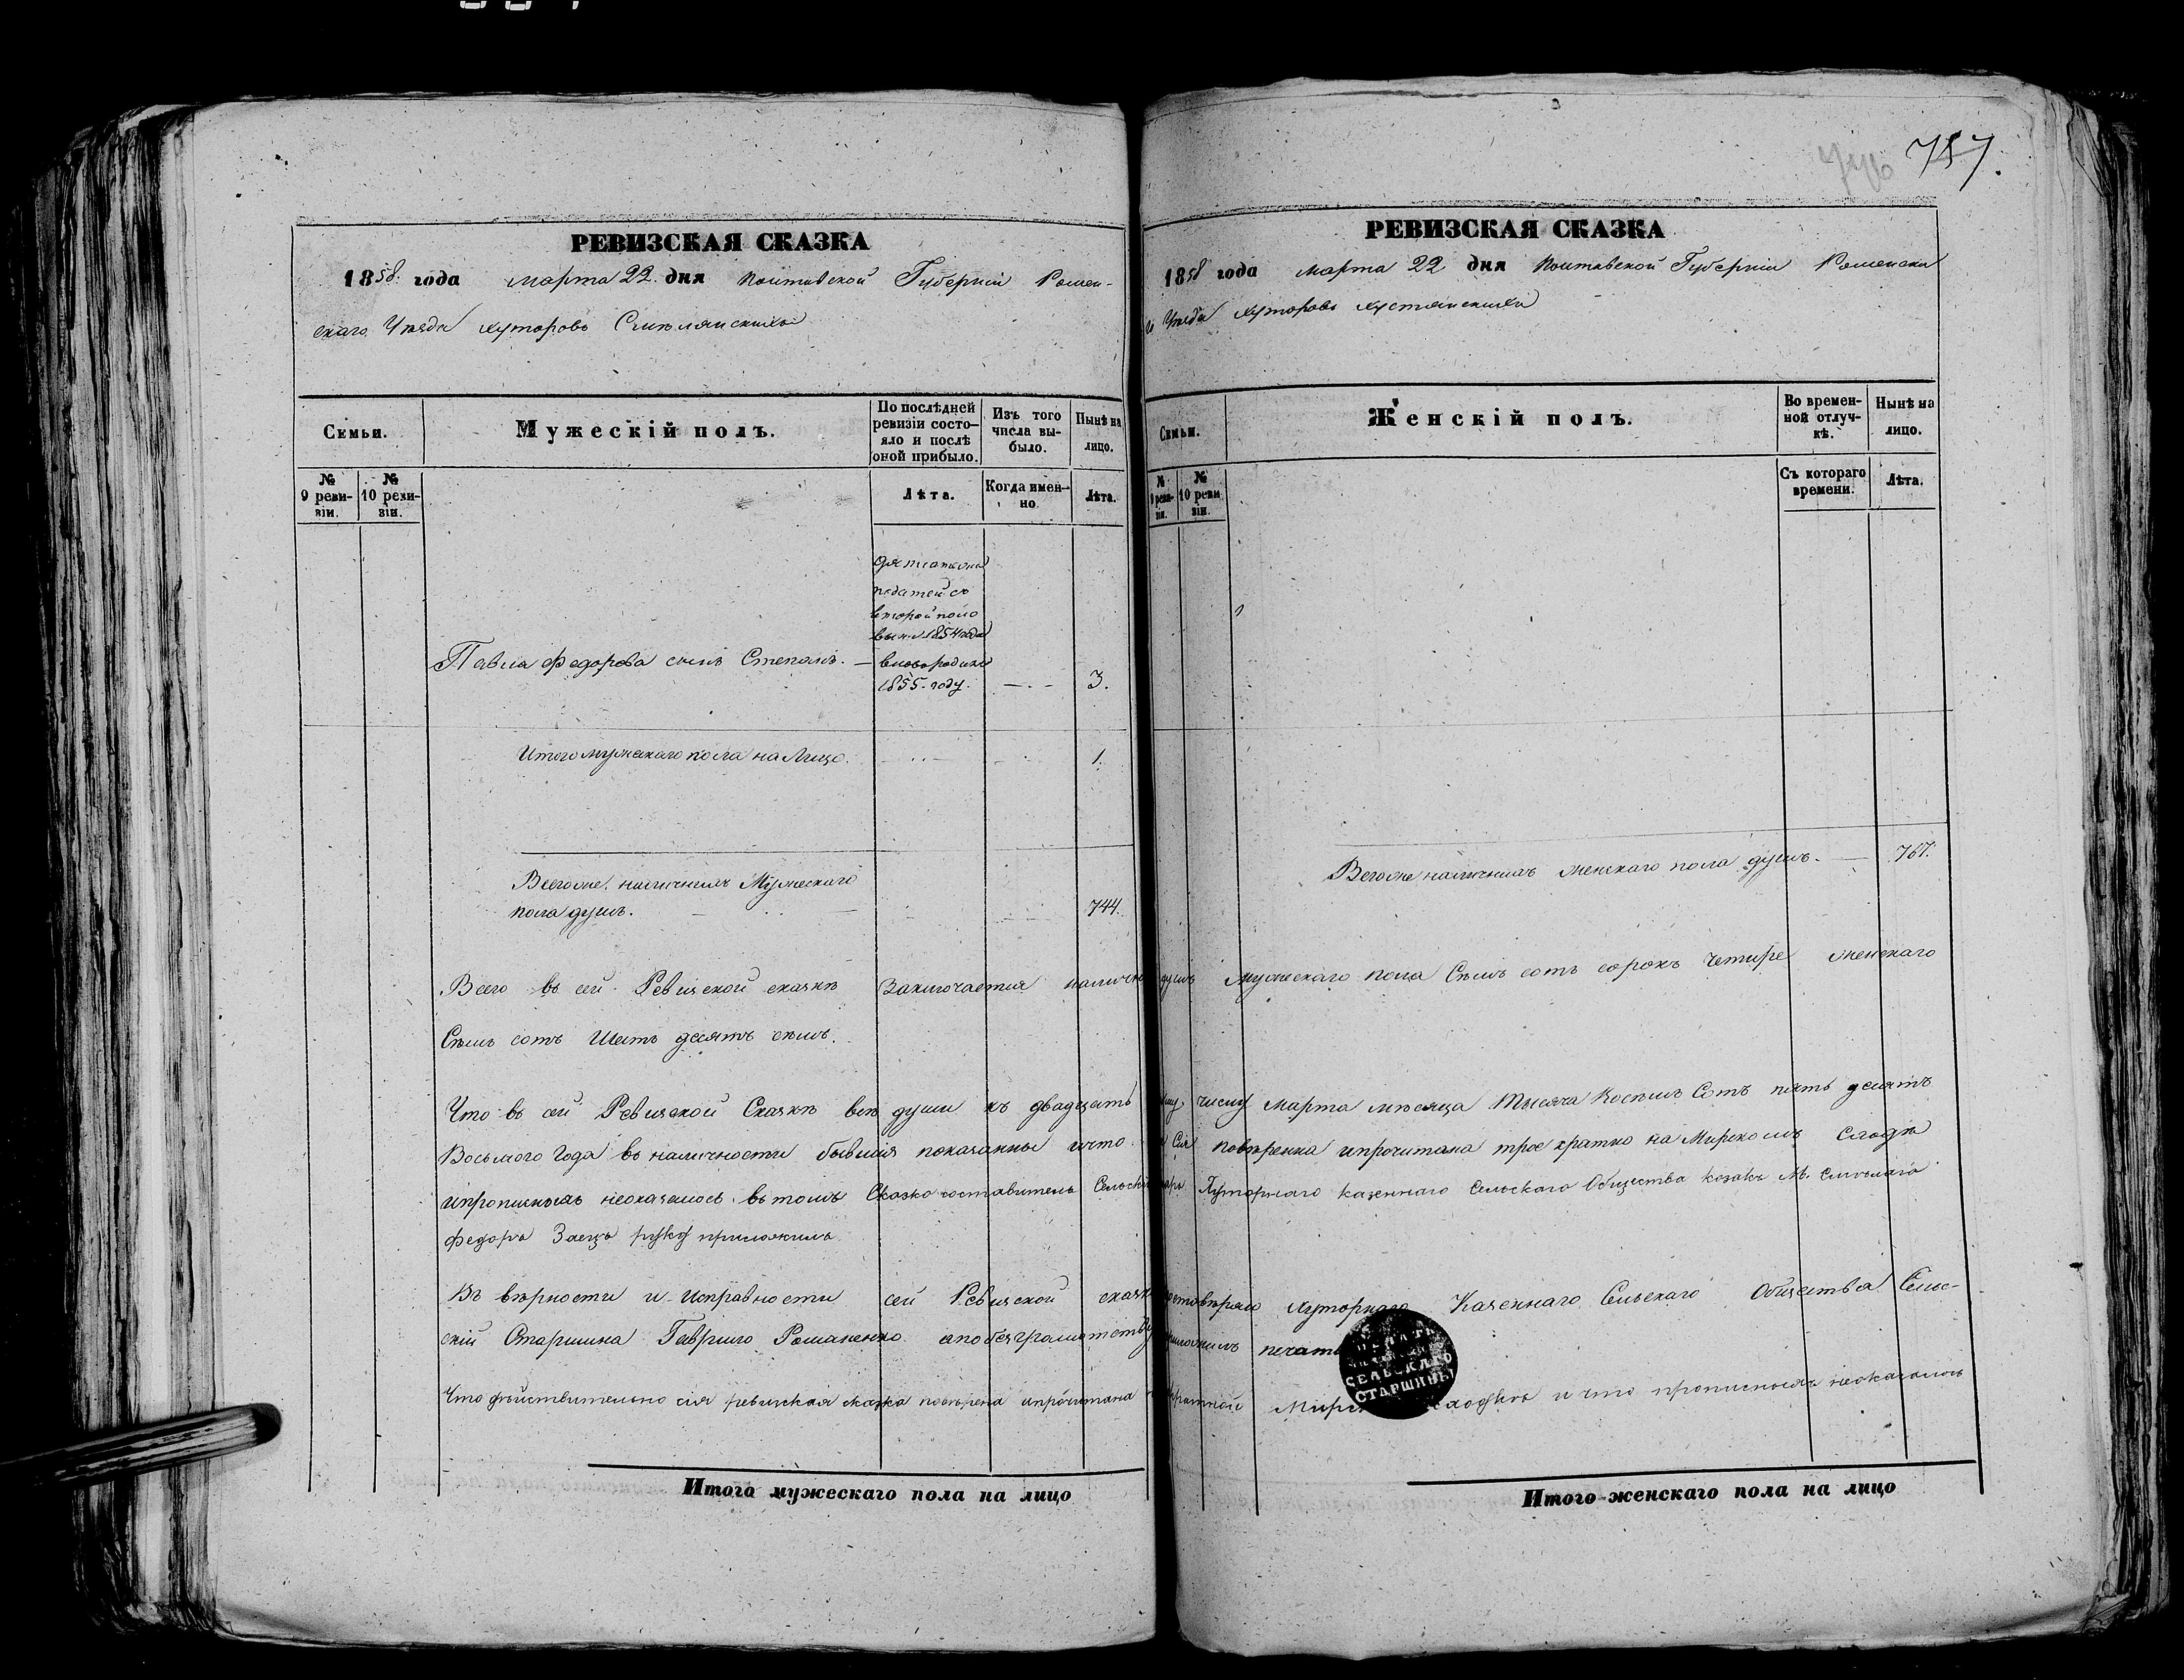 757.
РЕВИЗСКАЯ СКАЗКА
1858 года марта 22 дня Полтавской Губерніи Ромен-
скаго Уезда хуторовъ Смелянскихъ
Семьи.
Мужескій полъ.
По послѣдней ревизіи состо-
яло и послѣ оной прибыло.
Изъ того числа вы-
было.
Нынѣ на лицо.
№ 9 реви-
зіи.
№ 10 реви-
зіи.
Лѣта.
Когда имен-
но.
Лѣта.
податей съ
второй поло
вин. 1854 года
Павла Федорова сынъ Степанъ. — вново родился
1855. году. — 3.
Итого мужескаго пола на Лицо. 1.
Всего же наличныхъ Мужескаго
пола душъ. — 744.
РЕВИЗСКАЯ СКАЗКА
1858 года марта 22 дня Полтавской Губерніи Роменска
Уезда хуторовъ
Семьи.
Женскій полъ.
Во времен-
ной отлуч-
кѣ.
Нынѣ на лицо.
№ 9 реви-
зіи.
№ 10 реви
зіи.
Съ котораго времени.
Лѣта.
Всего же наличныхъ женскаго пола душъ. — 767.
Всего въ сей Ревизской сказкѣ Заключается налично душъ мужескаго пола Сѣмъ сотъ сорокъ четире женскаго
Сѣмъ сотъ Шесть десятъ сѣмъ.
Что въ сей Ревизской Сказкѣ всѣ души къ двадцать числу Марта мѣсяца Тысяча Восѣмъ Сотъ пять десятъ
Восьмого Года въ наличности бывшія показанны и что Сія повѣренна и прочитана трое кратно на Мирскомъ Сходѣ
и прописныхъ неоказалось. въ томъ Сказко составитель Сельскій Хуторнаго казеннаго Сельскаго Общества козакъ М. Смѣлаго
Федоръ Заецъ руку приложилъ
Въ вѣрности и Исправности сей Ревизской сказки Хуторнаго Казеннаго Сельскаго Общества Сель-
скій Старшина Гаврило Романенко а по безграмотству приложилъ печать
ПЕЧАТЬ
СЕЛЬСКАГО
СТАРШИНЫ
Что дѣйствительно сія ревизская сказка повѣрена и прочитана и что прописныхъ неоказалось
Итого мужескаго пола на лицо
Итого женскаго пола на лицо